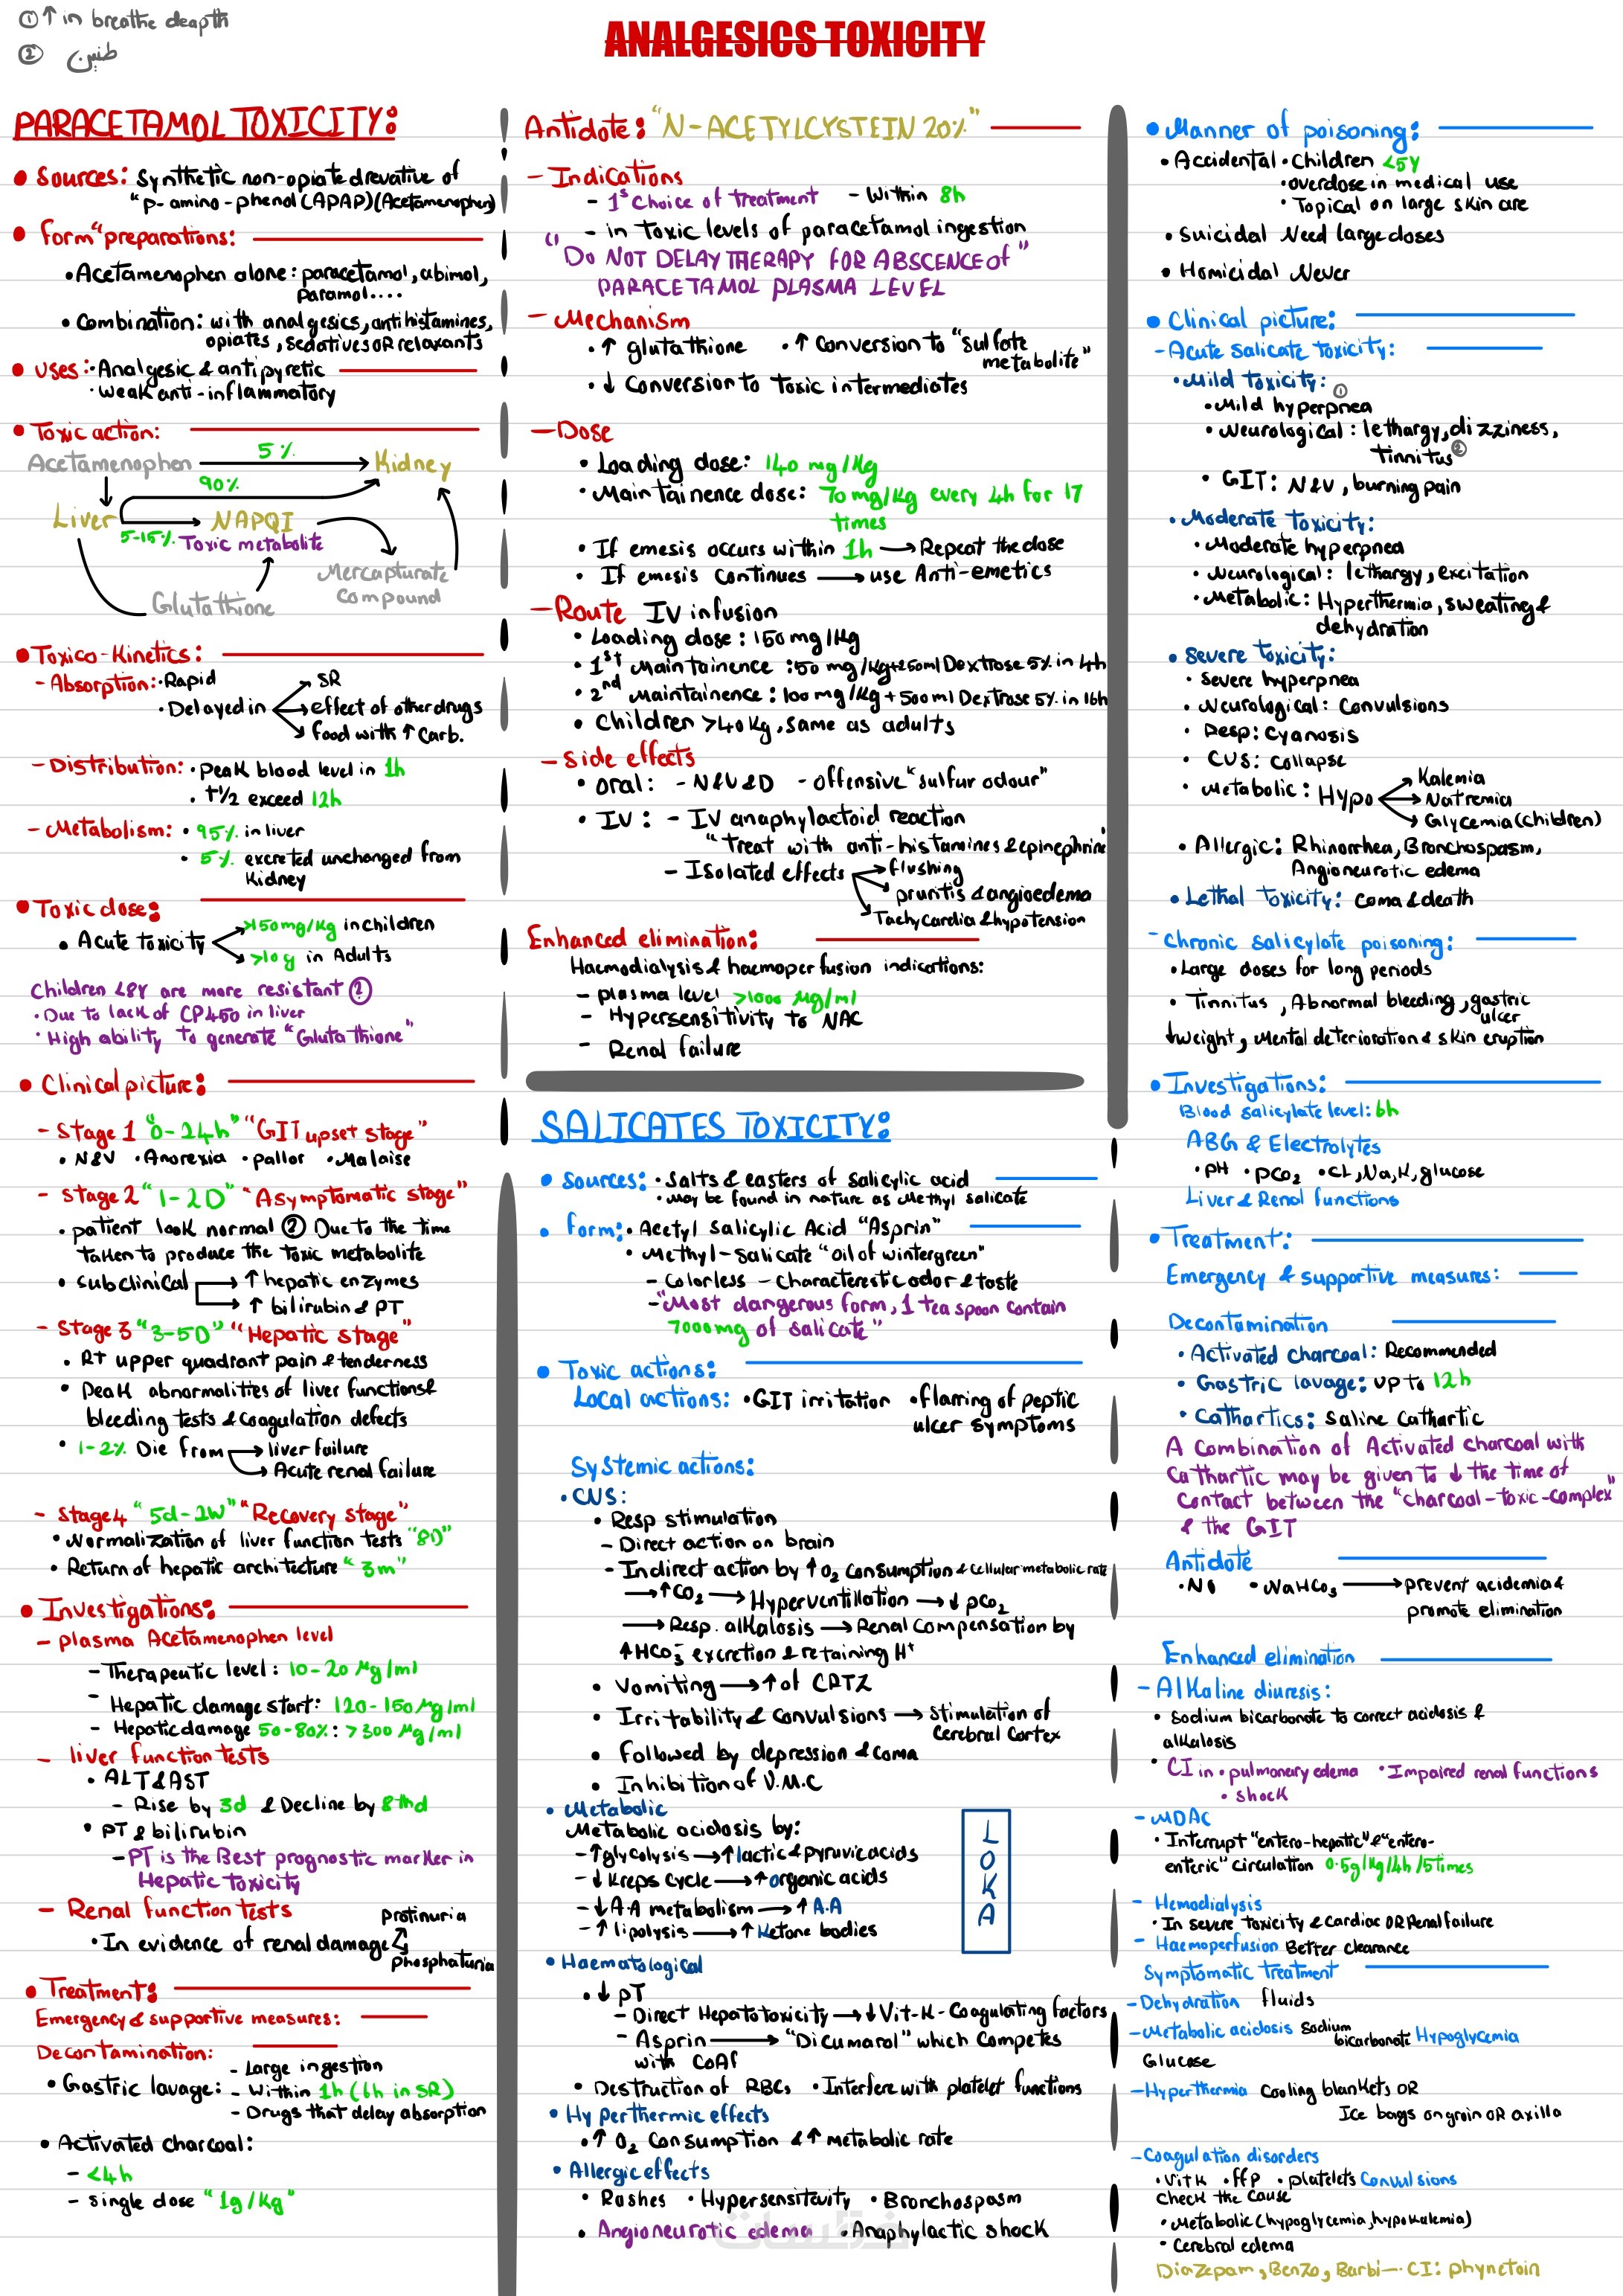 ① ↑ in breathe deapth
② طنين
ANALGESICS TOXICITY
PARACETAMOL TOXICITY:
• Sources: Synthetic non-opiate drevative of
"p-amino-phenol (APAP) (Acetamenophen)
• form "preparations:
• Acetamenophen alone: paracetamol, abimol,
Paramol....
• Combination: with analgesics, antihistamines,
opiates, sedatives OR relaxants
• uses: • Analgesic & antipyretic
• weak anti-inflammatory
• Toxic action:
Acetamenophen 5% Kidney
90%
Liver 5-15% NAPQI
Toxic metabolite
Mercapturate
compound
Glutathione
• Toxico-Kinetics:
- Absorption: • Rapid
• Delayed in → SR
→ effect of other drugs
→ food with ↑ Carb.
- Distribution: • peak blood level in 1h
• t1/2 exceed 12h
- Metabolism: • 95% in liver
• 5% excreted unchanged from
Kidney
• Toxic dose:
• Acute toxicity → >150mg/Kg in children
→ >10g in Adults
Children <8Y are more resistant ?
• Due to lack of CP450 in liver
• High ability to generate "Glutathione"
• Clinical picture:
- Stage 1 "0-24h" "GIT upset stage"
• N&V • Anorexia • pallor • Malaise
- Stage 2 "1-2D" "Asymptomatic stage"
• patient look normal ? Due to the time
taken to produce the toxic metabolite
• subclinical → ↑ hepatic enzymes
→ ↑ bilirubin & PT
- Stage 3 "3-5D" "Hepatic stage"
• RT upper quadrant pain & tenderness
• Peak abnormalities of liver functions &
bleeding tests & coagulation defects
• 1-2% Die from → liver failure
→ Acute renal failure
- Stage 4 "5d-2W" "Recovery stage"
• Normalization of liver function tests "8D"
• Return of hepatic architecture "3m"
• Investigations:
- plasma Acetamenophen level
- Therapeutic level: 10-20 Mg/ml
- Hepatic damage start: 120-150 Mg/ml
- Hepatic damage 50-80%: >300 Mg/ml
- liver function tests
• ALT & AST
- Rise by 3d & Decline by 8thd
• PT & bilirubin
- PT is the Best prognostic marker in
Hepatic toxicity
- Renal function tests
• In evidence of renal damage → protinuria
→ phosphaturia
• Treatment:
Emergency & supportive measures:
Decontamination:
• Gastric lavage: - Large ingestion
- Within 1h (6h in SR)
- Drugs that delay absorption
• Activated charcoal:
- <4h
- single dose "1g/Kg"
Antidote: "N-ACETYLCYSTEIN 20%"
- Indications
- 1st Choice of treatment - Within 8h
- in toxic levels of paracetamol ingestion
"Do NOT DELAY THERAPY FOR ABSCENCE of"
PARACETAMOL PLASMA LEVEL
- Mechanism
• ↑ glutathione • ↑ Conversion to "sulfate
metabolite"
• ↓ Conversion to toxic intermediates
- Dose
• Loading dose: 140 mg/Kg
• Maintainence dose: 70mg/Kg every 4h for 17
times
• If emesis occurs within 1h → Repeat the dose
• If emesis continues → use Anti-emetics
- Route IV infusion
• Loading dose: 150 mg/Kg
• 1st Maintainence: 50 mg/Kg+250ml Dextrose 5% in 4h
• 2nd Maintainence: 100 mg/Kg + 500 ml Dextrose 5% in 16h
• Children >40Kg, same as adults
- Side effects
• oral: - N&V&D - offensive "sulfur odour"
• IV: - IV anaphylactoid reaction
"Treat with anti-histamines & epinephrine"
- Isolated effects → flushing
→ pruritis & angioedema
→ Tachycardia & hypotension
Enhanced elimination:
Haemodialysis & haemoperfusion indications:
- plasma level >1000 Mg/ml
- Hypersensitivity to NAC
- Renal failure
SALICATES TOXICITY:
• Sources: • Salts & easters of salicylic acid
• may be found in nature as Methyl salicate
• form: • Acetyl Salicylic Acid "Asprin"
• Methyl-Salicate "oil of wintergreen"
- Colorless - characterestic odor & taste
- "Most dangerous form, 1 tea spoon contain
7000mg of salicate"
• Toxic actions:
Local actions: • GIT irritation • flarring of peptic
ulcer symptoms
Systemic actions:
• CNS:
• Resp stimulation
- Direct action on brain
- Indirect action by ↑ O2 consumption & cellular metabolic rate
→ ↑ CO2 → Hyperventillation → ↓ pCO2
→ Resp. alkalosis → Renal compensation by
↑ HCO3⁻ excretion & retaining H⁺
• Vomiting → ↑ of CRTZ
• Irritability & Convulsions → Stimulation of
Cerebral Cortex
• Followed by depression & coma
• Inhibition of V.M.C
• Metabolic
Metabolic acidosis by:
- ↑ glycolysis → ↑ lactic & pyruvic acids
- ↓ Kreps cycle → ↑ organic acids
- ↓ A.A metabolism → ↑ A.A
- ↑ lipolysis → ↑ Ketone bodies
L
O
K
A
• Haematological
• ↓ PT
- Direct Hepatotoxicity → ↓ Vit-K-Coagulating factors
- Asprin → "Dicumarol" which Competes
with CoAf
• Destruction of RBCs • Interfere with platelet functions
• Hyperthermic effects
• ↑ O2 Consumption & ↑ metabolic rate
• Allergic effects
• Rashes • Hypersensitevity • Bronchospasm
• Angioneurotic edema • Anaphylactic shock
• Manner of poisoning:
• Accidental • Children <5Y
• overdose in medical use
• Topical on large skin are
• Suicidal Need large doses
• Homicidal Never
• Clinical picture:
- Acute salicate toxicity:
• Mild toxicity:
• Mild hyperpnea ①
• Neurological: lethargy, dizziness,
tinnitus ②
• GIT: N&V, burning pain
• Moderate toxicity:
• Moderate hyperpnea
• Neurological: lethargy, excitation
• Metabolic: Hyperthermia, sweating &
dehydration
• Severe toxicity:
• Severe hyperpnea
• Neurological: Convulsions
• Resp: Cyanosis
• CVS: Collapse
• Metabolic: Hypo → Kalemia
→ Natremia
→ Glycemia (children)
• Allergic: Rhinorrhea, Bronchospasm,
Angioneurotic edema
• Lethal toxicity: Coma & death
- Chronic salicylate poisoning:
• Large doses for long periods
• Tinnitus, Abnormal bleeding, gastric
ulcer
↓weight, Mental deterioration & skin eruption
• Investigations:
Blood salicylate level: 6h
ABG & Electrolytes
• PH • pCO2 • CL, Na, K, glucose
Liver & Renal functions
• Treatment:
Emergency & supportive measures:
Decontamination
• Activated charcoal: Recommended
• Gastric lavage: UP to 12h
• Cathartics: Saline Cathartic
A Combination of Activated charcoal with
Cathartic may be given to ↓ the time of
Contact between the "charcoal-toxic-complex"
& the GIT
Antidote
• No • NaHCO3 → prevent acidemia &
promote elimination
Enhanced elimination
- Alkaline diuresis:
• Sodium bicarbonate to correct acidosis &
alkalosis
• CI in • pulmonary edema • Impaired renal functions
• shock
- MDAC
• Interrupt "entero-hepatic" & "entero-
enteric" circulation 0.5g/Kg/4h/5times
- Hemodialysis
• In severe toxicity & Cardiac OR Renal failure
- Haemoperfusion Better clearance
Symptomatic treatment
- Dehydration fluids
- Metabolic acidosis Sodium
bicarbonate Hypoglycemia
Glucose
- Hyperthermia Cooling blankets OR
Ice bags on groin OR axilla
- Coagulation disorders
• Vit K • ffp • platelets Convulsions
Check the cause
• Metabolic (hypoglycemia, hypokalemia)
• Cerebral edema
Diazepam, Benzo, Barbi- CI: phynetoin